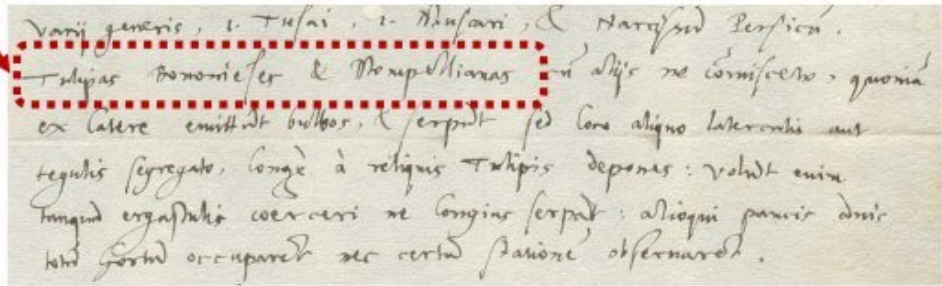 varij generis, 1. Tusai, 2. Muscari, & Narcissũ Persicũ.
Tulipas Bononieses & Mompellianas cũ alijs ne comisceto, quoniã
ex latere emittũt bulbos, & serpũt sed loco aliquo laterculis aut
tegulis segregato, longè à reliquis Tulipis depones: volũt enim
tanquã ergastulis coerceri ne longius serpãt: alioqui paucis annis
totũ hortũ occuparẽt nec certã stationẽ observarẽt.